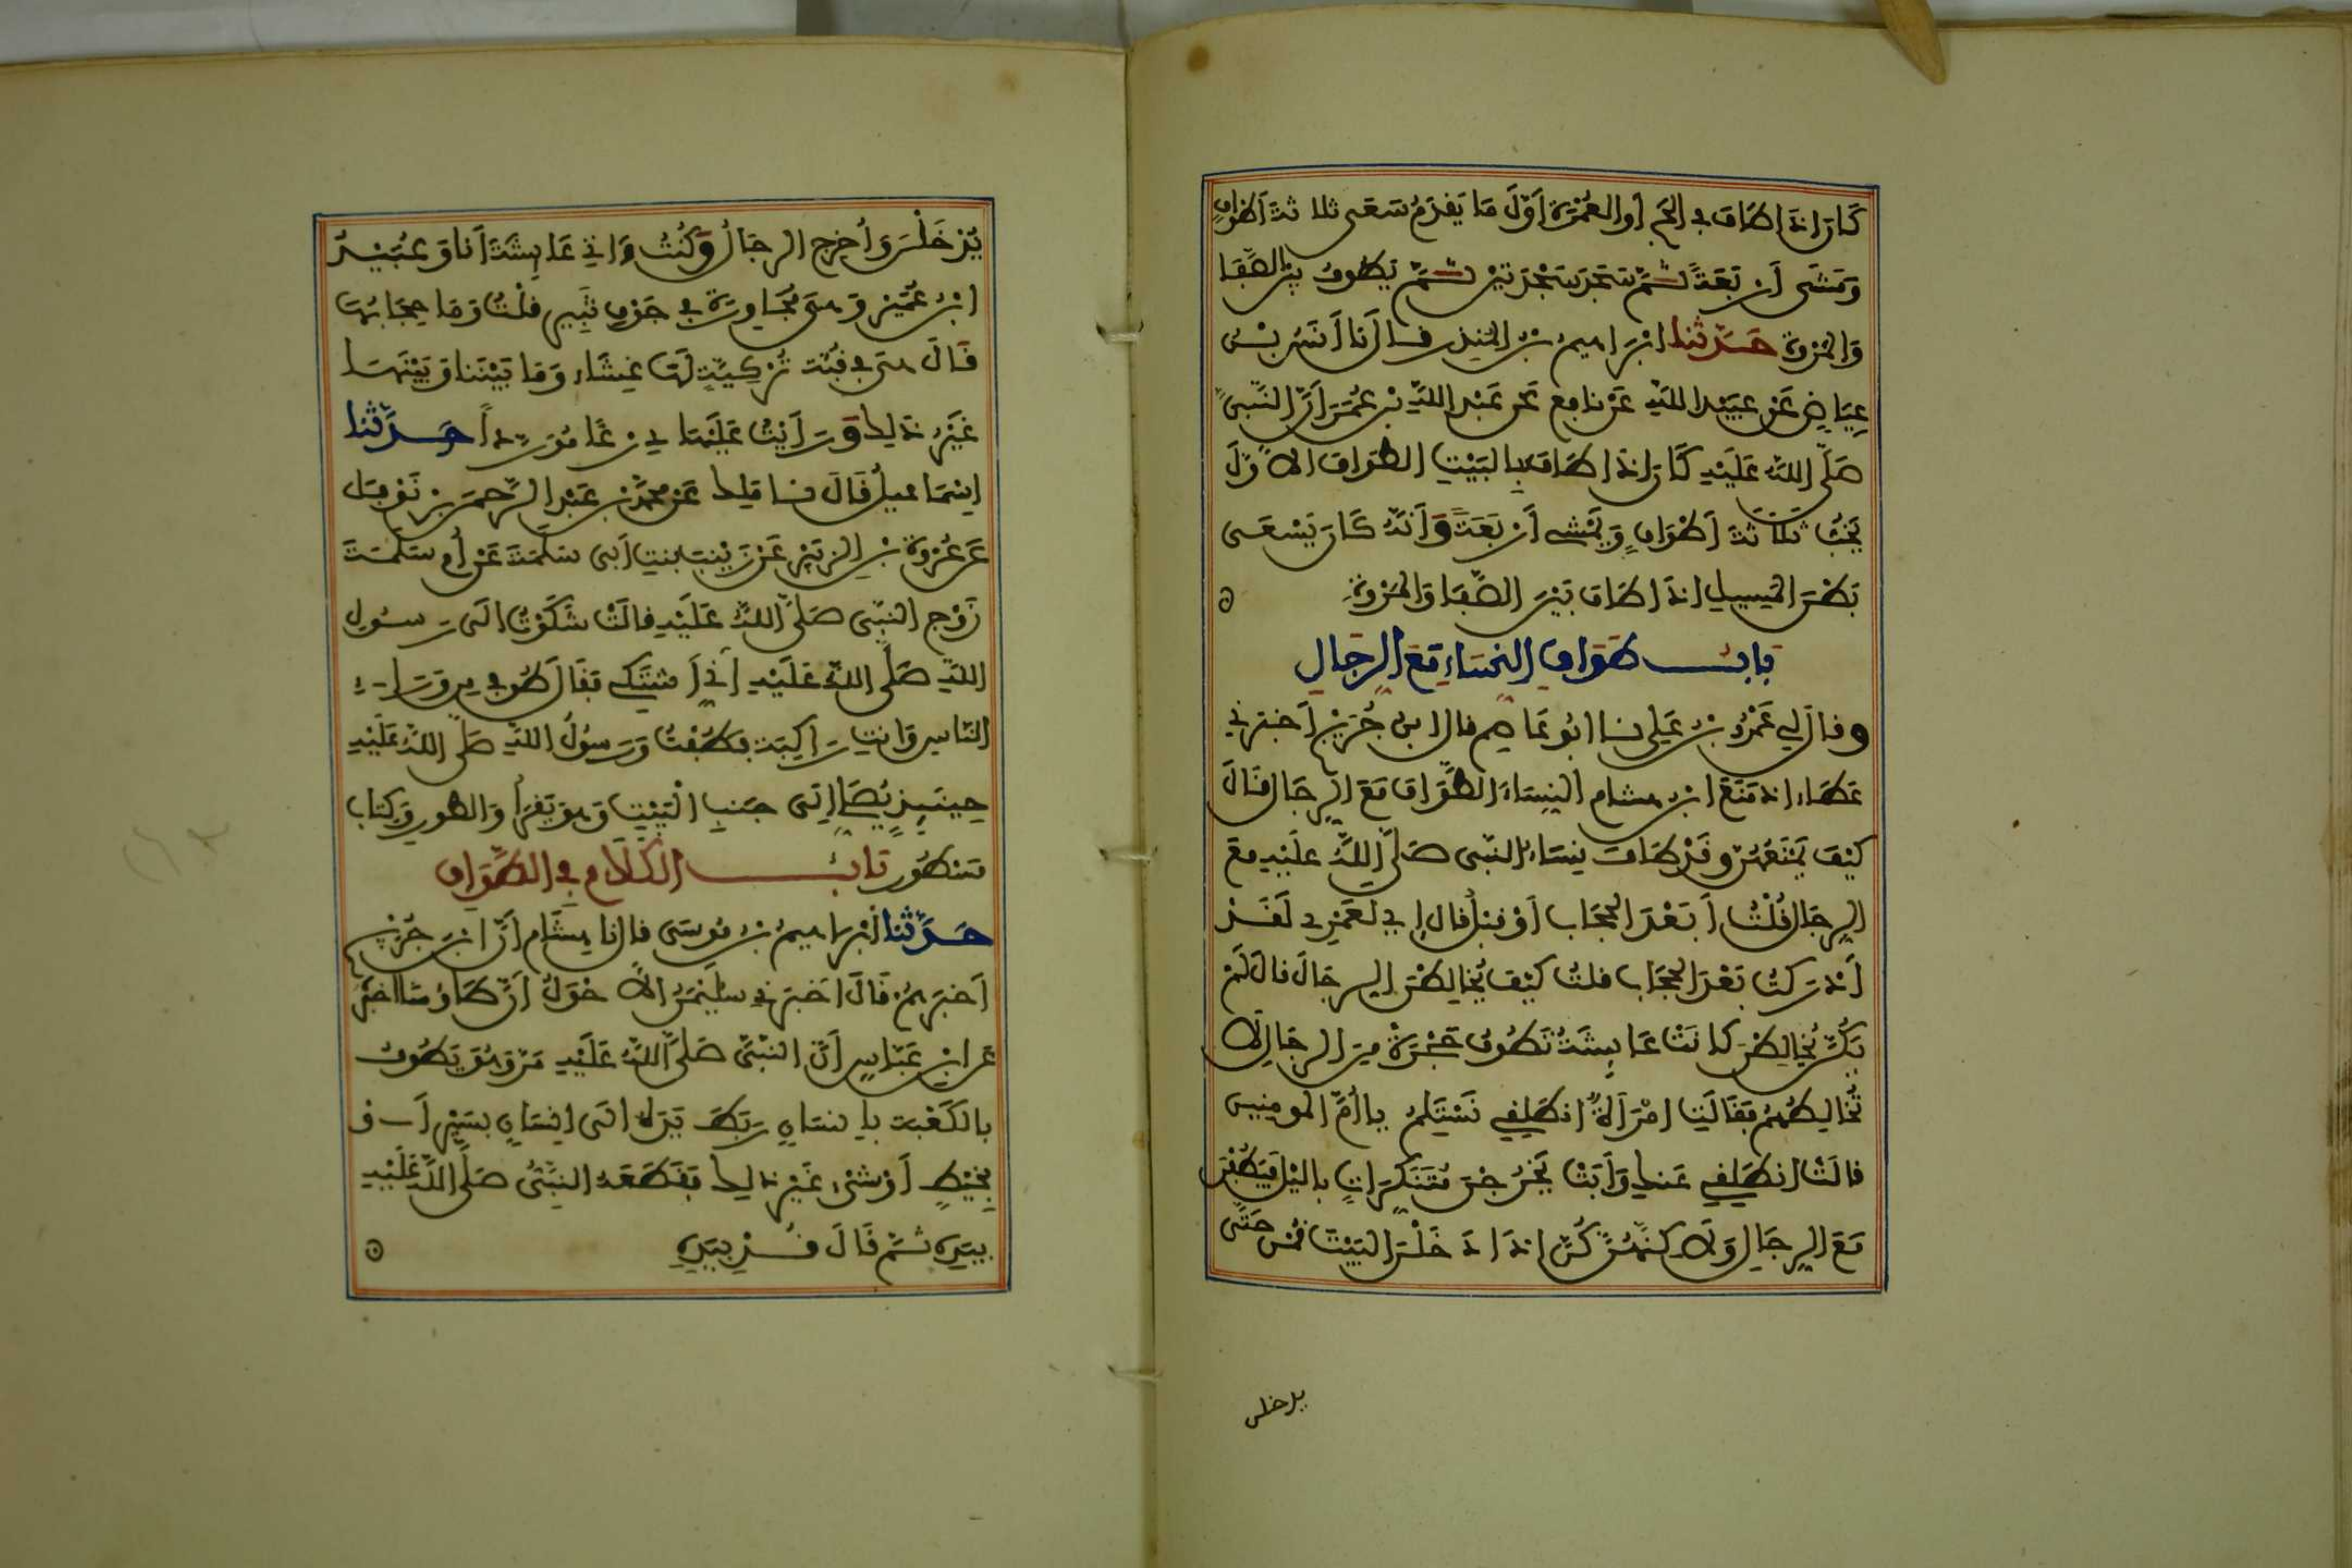 كَانَ اذَا طَافَ في الحج أو العُمْرَةِ أوَّلَ مَا يَقدَمُ سَعَى ثلاثة أطوافٍ
وَمَشَى أَرْبَعَةً ثُمَّ سَجَدَ سَجْدَتَيْن ثُمَّ يَطُوفُ بين الصَّفَا
وَالمَرْوَةِ حَدَّثنا ابْرَاهيمُ بن المُنذِر قال نَا أنَسُ بْنُ
عِيَاضٍ عَنْ عُبَيْدِ اللهِ عَنْ نَافِع عَن عَبْدِ اللهِ بْنِ عُمَرَ أَنَّ النَّبِيَّ
صَلَّى اللهُ عَلَيْهِ كَانَ اذَا طَافَ بِالبَيْتِ الطَوَافَ الاوَّلَ
يَخُبُّ ثَلاثَةَ أَطْوَافٍ وَيَمْشِي أَرْبَعَةً وَأَنَّهُ كَانَ يَسْعَى
بَطْنَ المَسِيلِ اذَا طَافَ بَيْنَ الصَّفَا وَالمَرْوَةِ
بَابُ طَوَافِ النِّسَاءِ مَعَ الرِّجَالِ
وقال لي عَمْرُو بْنُ عَلِي نا ابُو عَاصِم قال ابنُ جُرَيْج أَخبَرَني
عَطَاء اذ مَنَعَ ابْنُ هشام النِّسَاءَ الطَّوَافَ مَعَ الرِّجَال قَالَ
كَيْفَ يَمْنَعُهُنَّ وقَدْ طَافَ نِسَاءُ النَّبى صَلَّى اللهُ عَلَيْهِ مَعَ
الرِّجَال قُلْتُ أَبَعْدَ الحِجَاب أَوْ قبْلُ قَال إي لَعَمْرِي لَقَدْ
أَدْرَكتُ بَعْدَ الحِجَابِ قلتُ كَيْفَ يُخَالِطْنَ الرِّجَالَ قال لَمْ
يَكُنَّ يُخَالِطْنَ كانَتْ عَايِشَةُ تَطُوفُ حَجْرَةً مِنَ الرِّجَالِ لَا
تُخَالِطُهُمْ فَقَالَتِ امْرَأَةٌ انطَلِقِي نَسْتَلِمْ يا أُمَّ المومنين
قالَتْ انطَلِقِي عَنكِ وَأَبَتْ يَخْرُجْنَ مُتَنَكِّرَاتٍ بالليْلِ فَيَطُفْنَ
مَعَ الرِّجَالِ وَلَاكِنَّهُنَّ كُنَّ اذَا دَخَلْنَ البَيْتَ قُمْنَ حَتَّى
يدخلن
يَدْخُلْنَ وَأُخْرِجَ الرِّجَالُ وَكُنْتُ ءَاتي عَايِشَةَ أَنَا وَعُبَيْدُ
ابْنُ عُمَيْر وَهي مُجَاوِرَةٌ في جَوْفِ ثَبِيرٍ قلْتُ وَمَا حِجَابُهَا
قَالَ هيَ في قُبَّة تُرْكِيَّةٍ لَهَا غِشَاء وَمَا بَيْنَنَا وَبَيْنَهَا
غَيْرُ ذَلِكَ وَرَأيْتُ عَلَيْهَا دِرْعًا مُوَرَّدًا حَدَّثَنا
اسْمَاعيلُ قَالَ نا مَلِك عَنْ محمد بن عَبْدِ الرَّحمن بْنِ نَوْفَل
عَن عُرْوَةَ بن الزُبَيْرِ عَنْ زَيْنَبَ بنتِ أَبي سَلَمَةَ عَنْ أُمِّ سَلَمَةَ
زَوْجِ النَّبِّى صَلَّى اللهُ عَلَيْهِ قالَتْ شَكَوْتُ الَى رَسُولِ
اللهِ صَلَّى اللهُ عَلَيْهِ أَنِّي أَشْتَكِي فَقَالَ طُوفي مِن وَرَاءِ
النَّاسِ وَانتِ رَاكِبَةٌ فَطُفْتُ وَرَسُولُ اللهِ صَلَّى اللهُ عَلَيْهِ
حِينَيِذٍ يُصَلِّي إلَى جَنبِ الْبَيْتِ وَهوَ يَقْرَأُ وَالطُّورِ وَكِتَابٍ
مَسْطُورٍ بَابُ الكَلَامِ في الطَّوَافِ
حَدَّثَنا ابْرَاهيمُ بْنُ مُوسَى قال نا هِشَام أَنَّ ابْنَ جُرَيْج
أَخبَرَهُمْ قَالَ اخبَرَني سُلَيْمَنُ الاحْوَلُ أَنَّ طَاوُسًا اخبَرَهُ
عَنِ ابْنِ عَبَّاسٍ أَنَّ النَّبيَّ صَلَّى اللهُ عَلَيْهِ مَرَّ وَهُوَ يَطُوفُ
بالكَعْبَة بإنسَانٍ رَبَطَ يَدَهُ الَى إنسَانٍ بِسَيْرٍ أَوْ
بِخَيْطٍ أَوْ شَيْءٍ غَيْرِ ذَلِكَ فَقَطَعَهُ النَّبيُّ صَلَّى اللهُ عَلَيْهِ
بِيَدِهِ ثُمَّ قَالَ قُدْ بِيَدِهِ